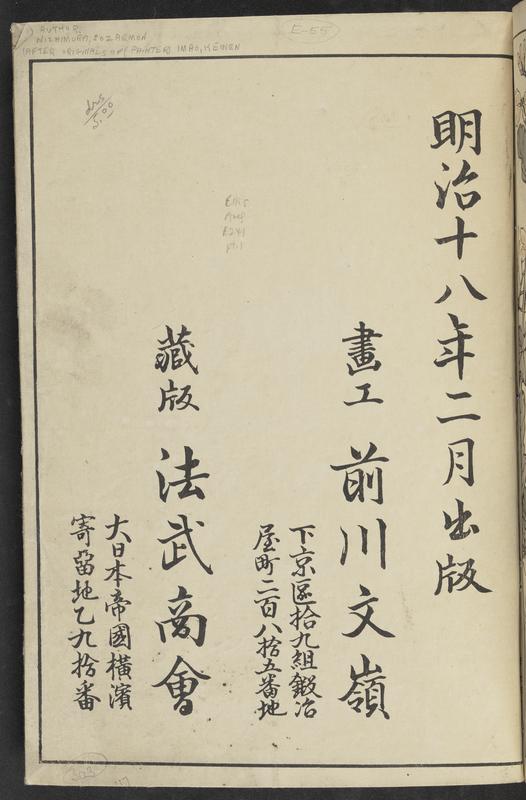 AUTHOR,
NISHIMURA, SOZAEMON
(AFTER ORIGINALS OF PAINTER) IMAO, KEINEN
E-55
5.00
明治十八年二月出版
畫工 前川文嶺
下京區拾九組鍛冶
屋町二百八拾五番地
藏版 法武商會
大日本帝國橫濱
寄畱地乙九拾番